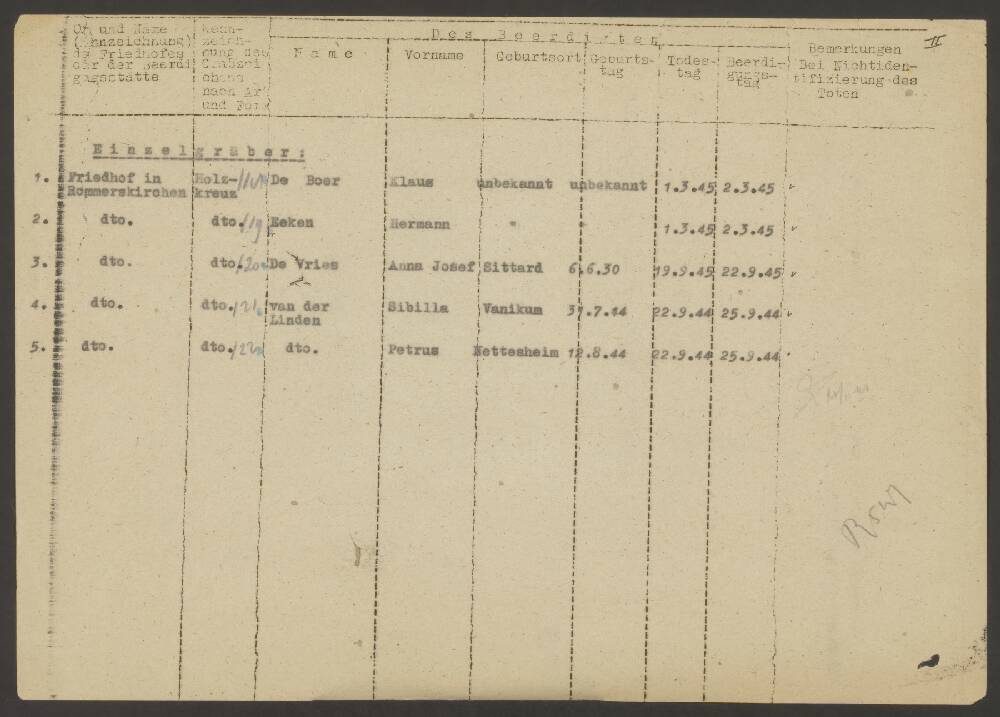 Ort und Name
(Kennzeichnung)
des Friedhofes
oder der Beerdi
gungsstätte
Kenn-
zeich-
nung des
nach Art
und Form
Des Beerdigten
Name
Vorname
Geburtsort
Geburts-
tag
Todes-
tag
Beerdi-
gungs-
tag
Bemerkungen
Bei Nichtiden-
tifizierung des
Toten
II
Einzelgräber:
1. Friedhof in Holz- De Boer Klaus unbekannt unbekannt 1.3.45 2.3.45
Rommerskirchen kreuz
2. dto. dto./19 Eeken Hermann " " 1.3.45 2.3.45
3. dto. dto./20 De Vries Anna Josef Sittard 6.6.30 19.9.45 22.9.45
4. dto. dto./21 van der Sibilla Vanikum 31.7.44 22.9.44 25.9.44
Linden
5. dto. dto./22 dto. Petrus Nettesheim 12.8.44 22.9.44 25.9.44